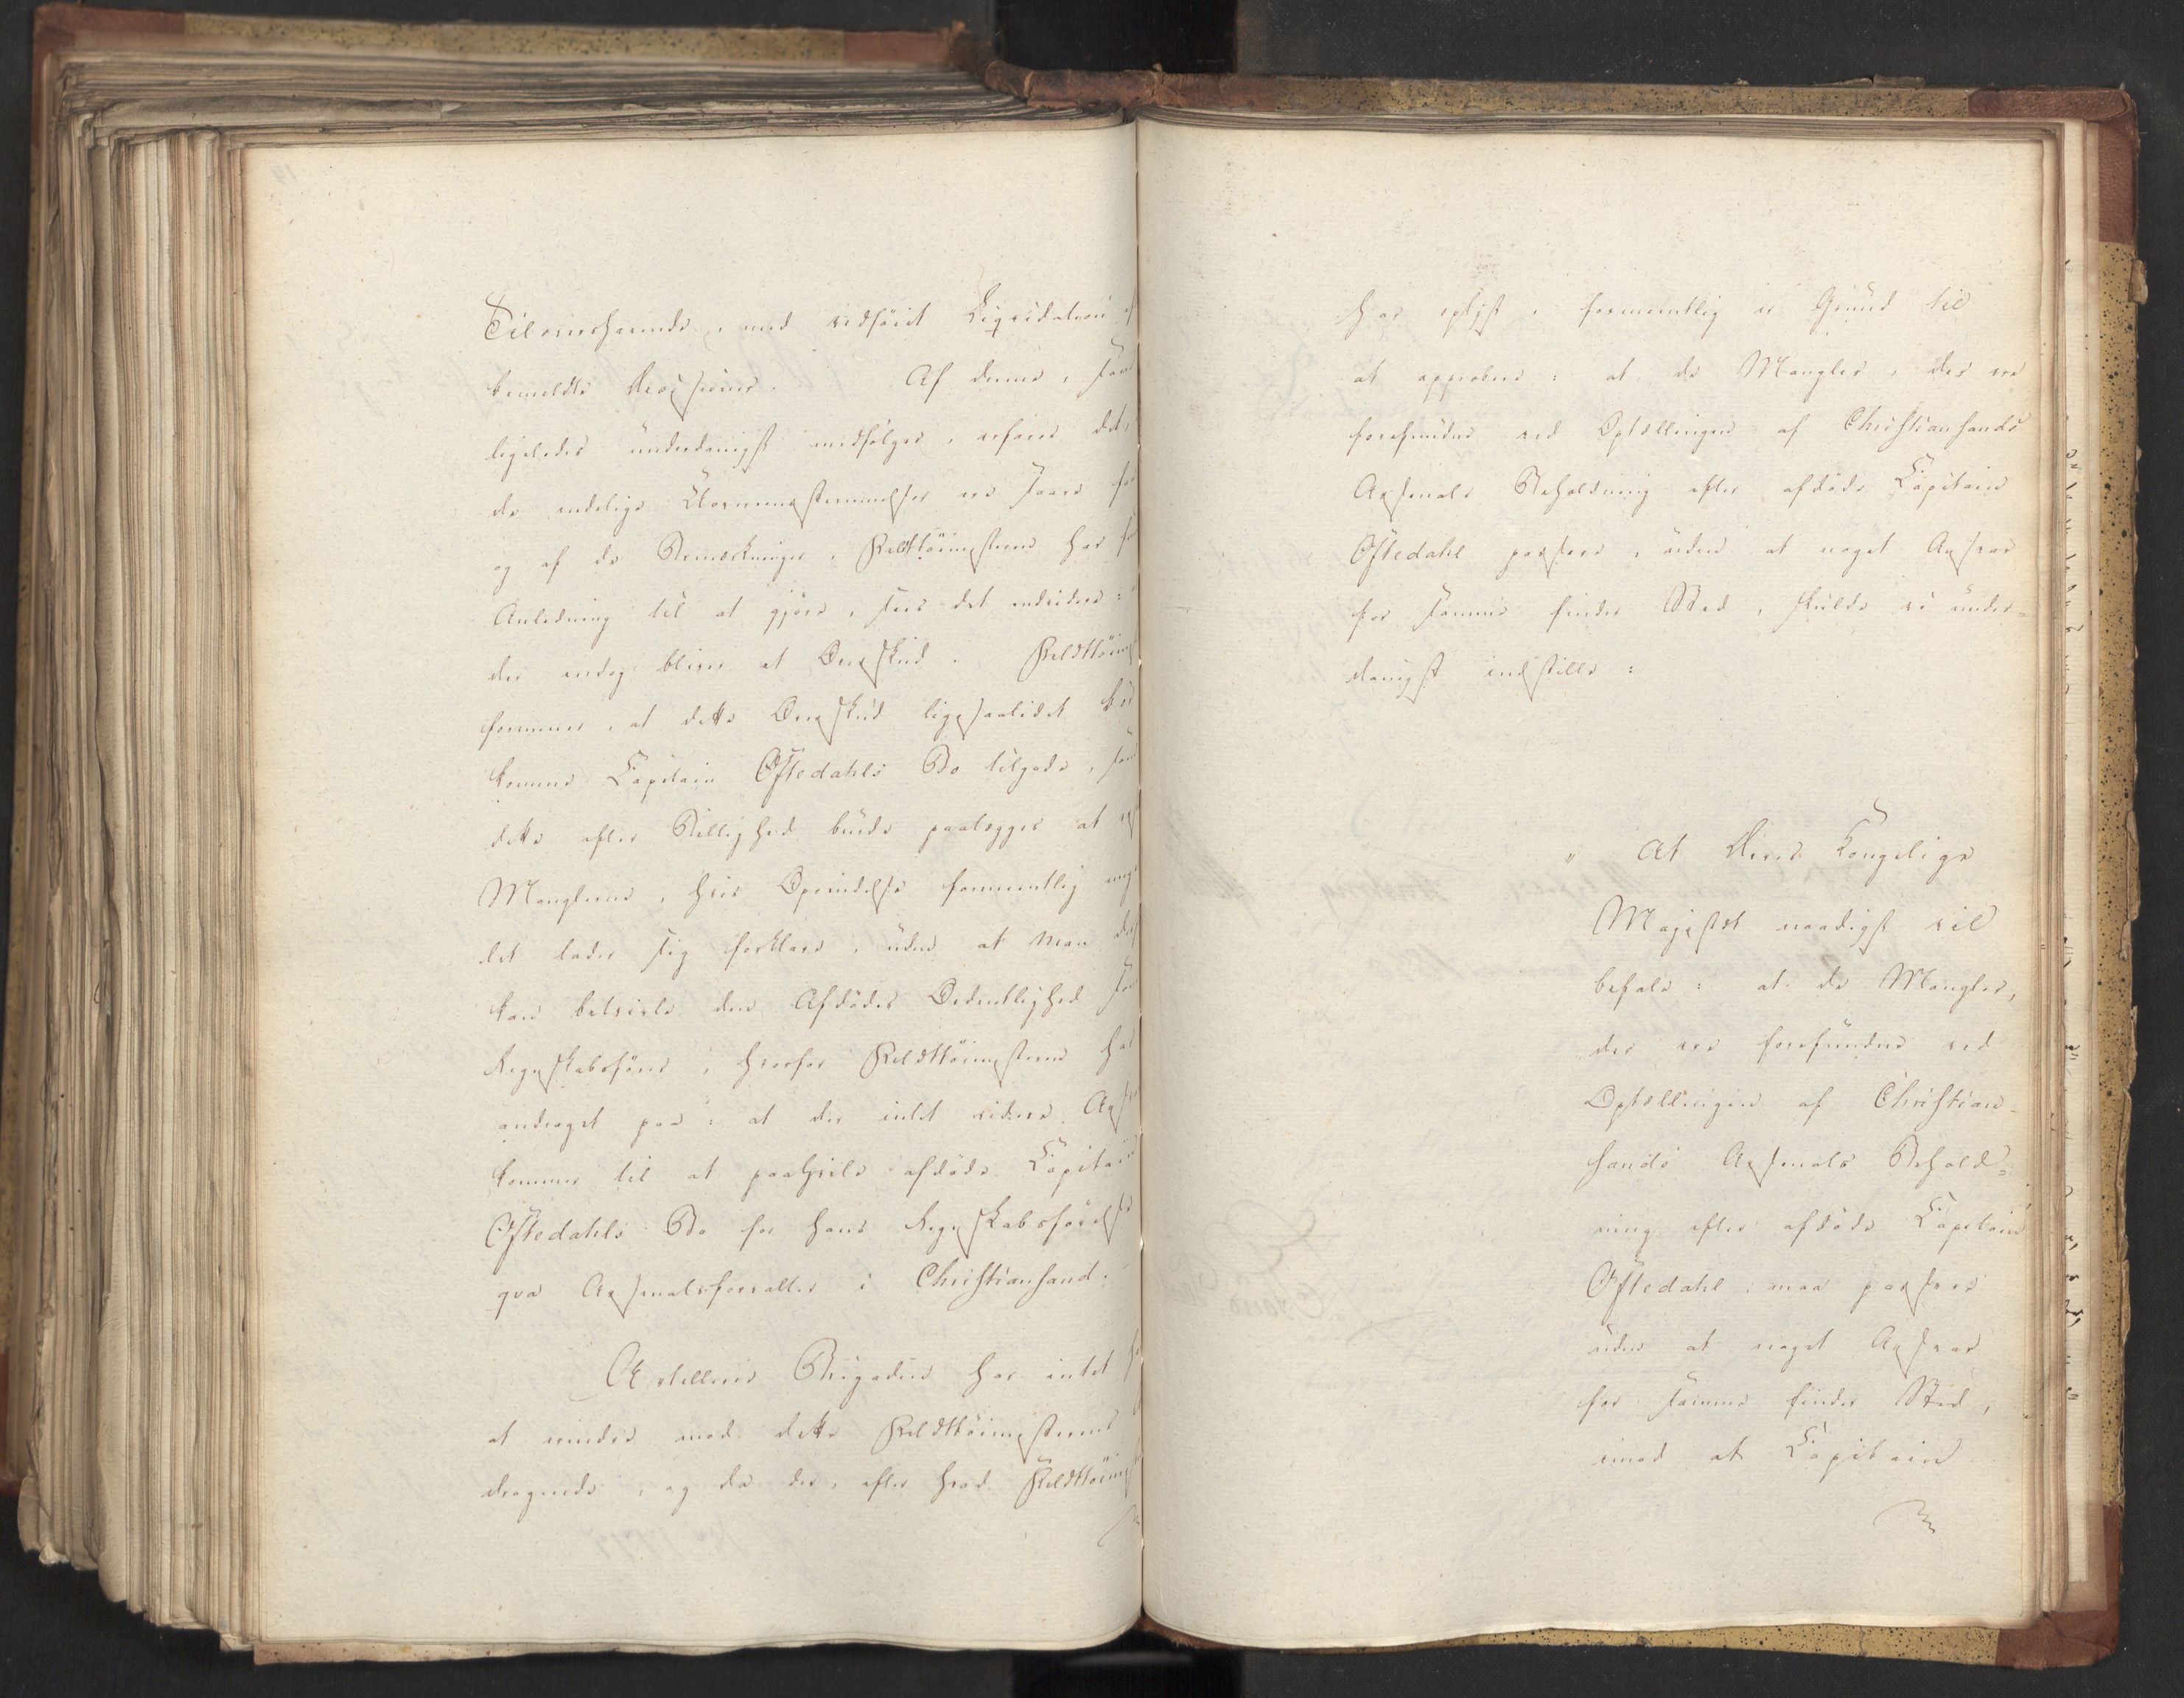 Tilsvarhavende, med vedføiet Liqvidation af
bemeldte Arsenal. Af denne, som
ligeledes underdanigst medfølger, erfares det,
de endelige Overeensstemmelser ere saare faa
og af de Bemærkninger, Feldttøimesteren har
Anledning til at gjøre, sees det endvidere:
der endog bliver et Overskud. Feldttøim
formener, at dette Overskud ligesaalidet bør
komme Capitain Oftedahls Bo tilgode, som
dette efter Billighed burde paalægges at
Manglerne, hvis Oprindelse formeentlig
let lader sig forklare, uden at man
kan betvivle den Afdødes Ordentlighed som
Regnskabsfører, hvorfor Feldttøimesteren har
andraget paa: at der intet videre Ansvar
kommer til at paahvile afdøde Capitain
Oftedahls Bo for hans Regnskabsførelse
qva Arsenalforvalter i Christiansand.
Artillerie Brigaden har intet
at erindre mod dette Feldttøimesterens
dragende, og da der, efter hvad Feldttøim
har oplyst, formeentlig er Grund til
at approbere: at de Mangler, der ere
forefundne ved Optællingen af Christiansands
Arsenals Beholdning efter afdøde Capitain
Oftedahl passere, uden at noget Ansvar
for samme finder Sted, skulde vi under-
danigst indstille:
" At Deres Kongelige
Majestæt naadigst vil
befale: at de Mangler,
der ere forefundne ved
Optællingen af Christian-
sands Arsenals Behold-
ning efter afdøde Capitain
Oftedahl, maa passere
uden at noget Ansvar
for samme finder Sted,
imod at Capitain